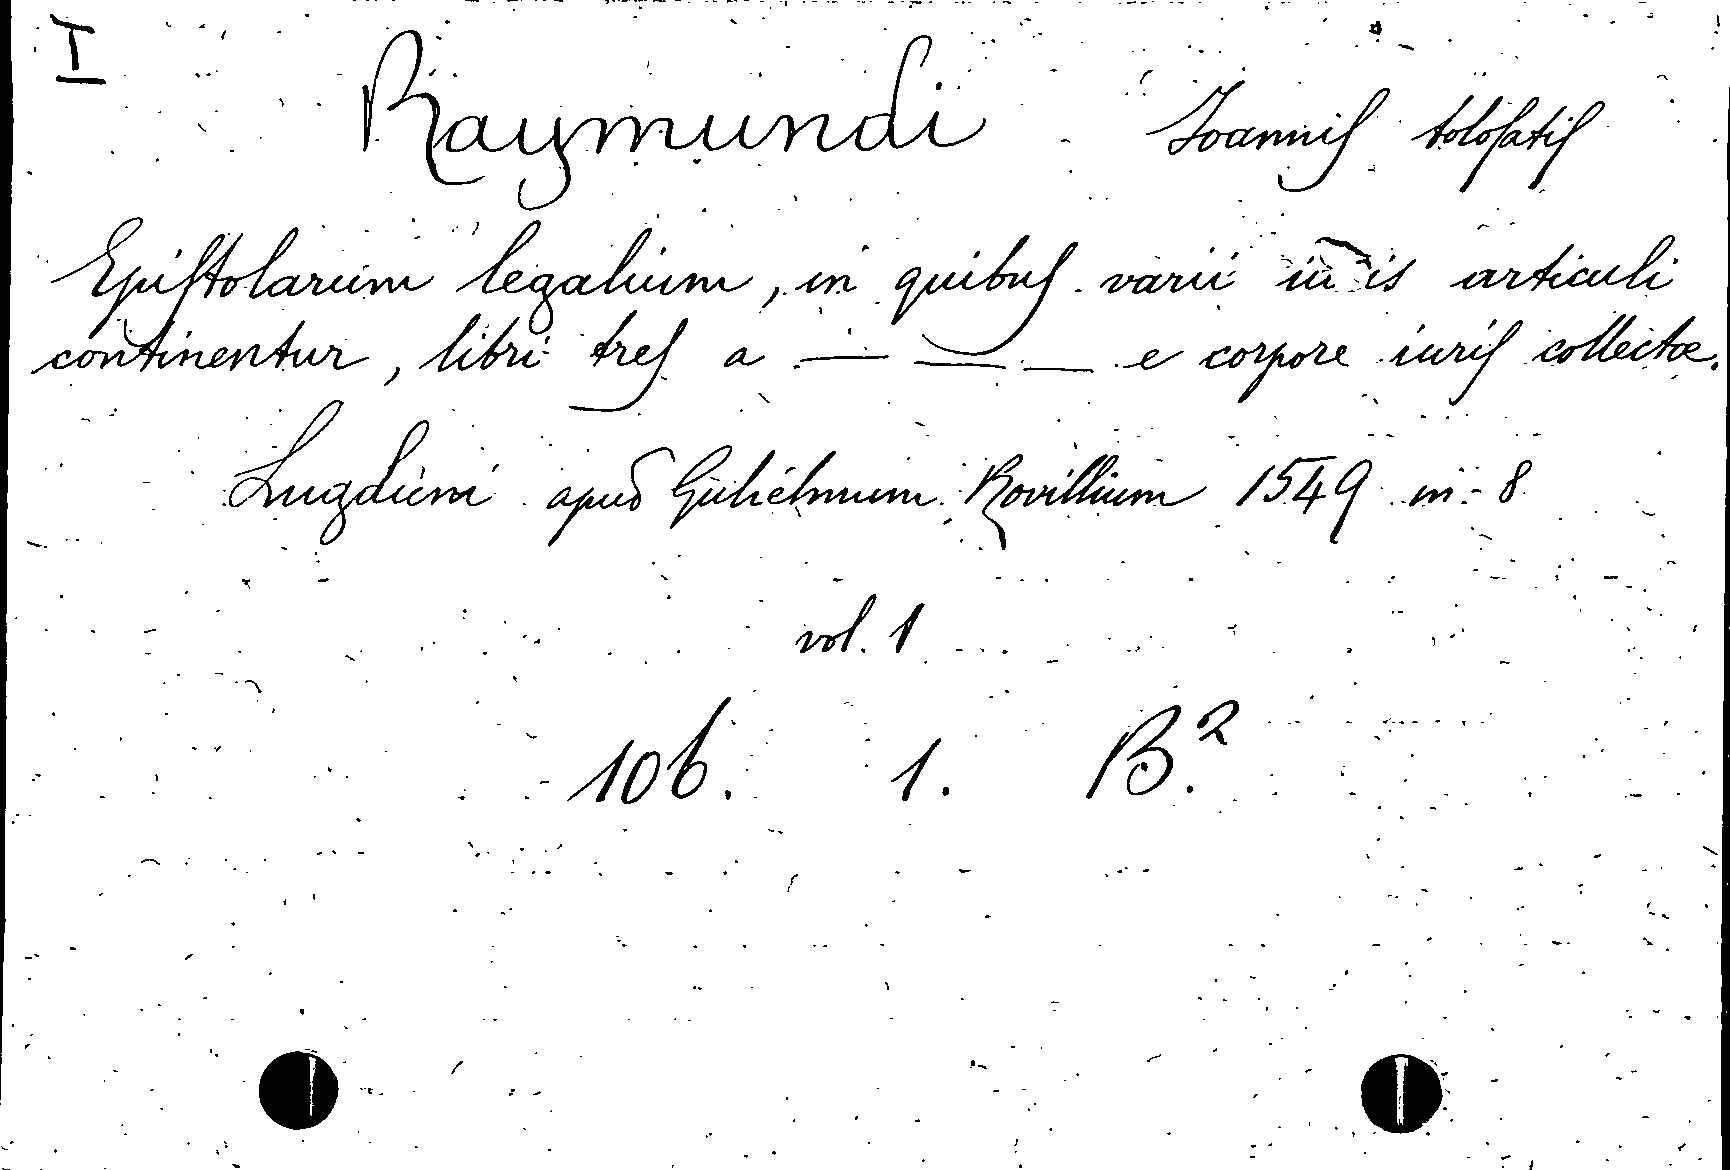 I
Raymundi Joannis tolosatis
Epistolarum legalium, in quibus varii iuris articuli
continentur, libri tres a — — — e corpore iuris collectæ.
Lugduni apud Gulielmum Rovillium 1549 in-8
vol. 1
106. 1. B.2